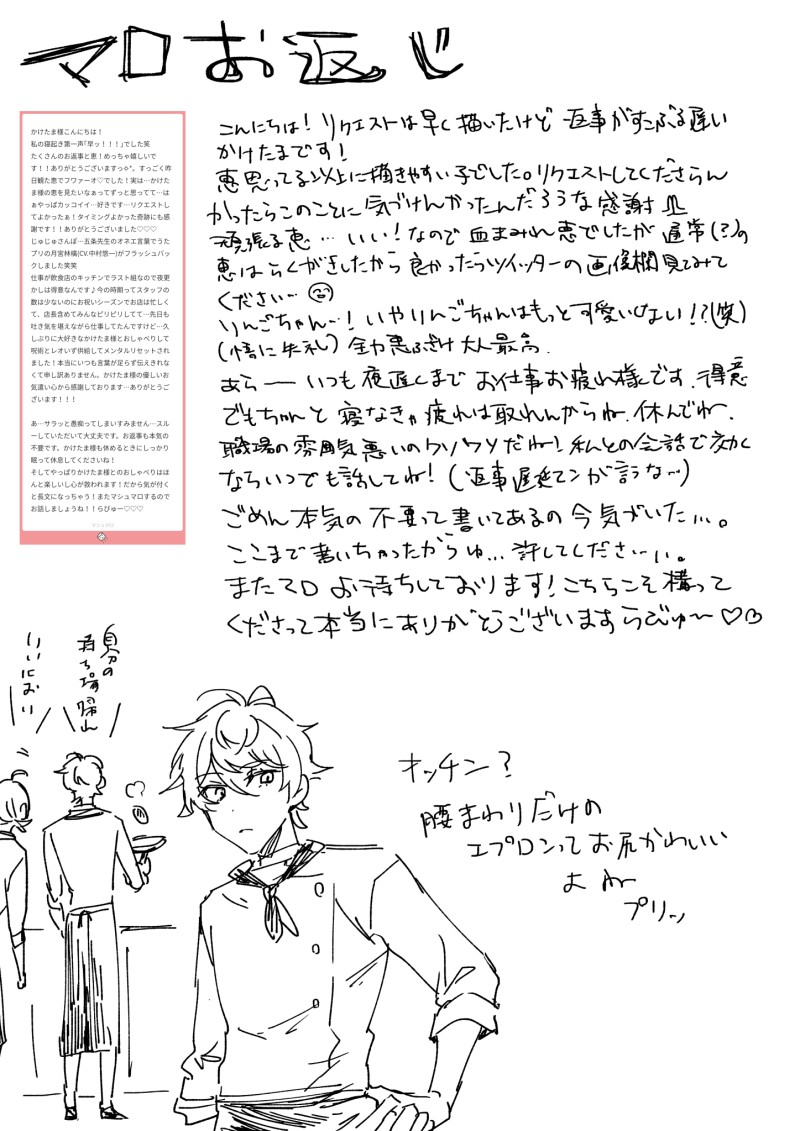 マロお返し
かけたま様こんにちは！
私の寝起き第一声「早ッ！！！」でした笑
たくさんのお返事と恵！めっちゃ嬉しいで
す！！ありがとうございますっ✧*。すっごく昨
日観た恵でフワァーオ♡でした！実は…かけた
ま様の恵を見たいなぁってずっと思ってて…は
ぁやっぱカッコイイ…好きです…リクエストし
てよかったぁ！タイミングよかった奇跡にも感
謝です！！ありがとうございました♡♡♡
じゅじゅさんぽ…五条先生のオネエ言葉でうた
プリの月宮林檎(CV.中村悠一)がフラッシュバッ
クしました笑笑
仕事が飲食店のキッチンでラスト組なので夜更
かしは得意なんです♪今の時期ってスタッフの
数は少ないのにお祝いシーズンでお店は忙しく
て、店長含めてみんなピリピリしてて…先日も
吐き気を堪えながら仕事してたんですけど…久
しぶりに大好きなかけたま様とおしゃべりして
呪術とレオいず供給してメンタルリセットされ
ました！本当にいつも言葉が足らず伝えきれな
くて申し訳ありません。かけたま様の優しいお
気遣い心から感謝しております…ありがとうご
ざいます！！！
あ…サラッと愚痴ってしまいすみません…スル
ーしていただいて大丈夫です。お返事も本気の
不要です。かけたま様も休めるときにしっかり
眠って休息してくださいね！
そしてやっぱりかけたま様とのおしゃべりはほ
んと楽しいし心が救われます！だから気が付く
と長文になっちゃう！またマシュマロするので
お話しましょうね！！らびゅー♡♡♡
マシュマロ
こんにちは！リクエストは早く描いたけど 返事がすこぶる遅い
かけたまです！
恵思ってる以上に描きやすい子でした。リクエストしてくださらん
かったらこのことに気づけんかったんだろうな感謝
頑張る恵… いい！なので血まみれ恵でしたが 通常(?)の
恵はらくがきしたから良かったらツイッターの画像欄見てみて
ください…
りんごちゃん…！いやりんごちゃんはもっと可愛いじゃない!?(笑)
(悟に失礼) 全力悪ふざけ大人最高.
あらー いつも夜遅くまでお仕事お疲れ様です.得意
でもちゃんと寝なきゃ疲れは取れんからね.休んでね.
職場の雰囲気悪いのクソクソだね！私との会話で効く
ならいつでも話してね！(返事遅延マンが言うな…)
ごめん本気の不要って書いてあるの今気がいた…。
ここまで書いちゃったからゆ…許してください…。
またマロお待ちしております！こちらこそ構って
くださって本当にありがとうございますらびゅ〜♡
自分の
持ち場帰れ
いいにおい
キッチン？
腰まわりだけの
エプロンってお尻かわいい
よね
プリッ